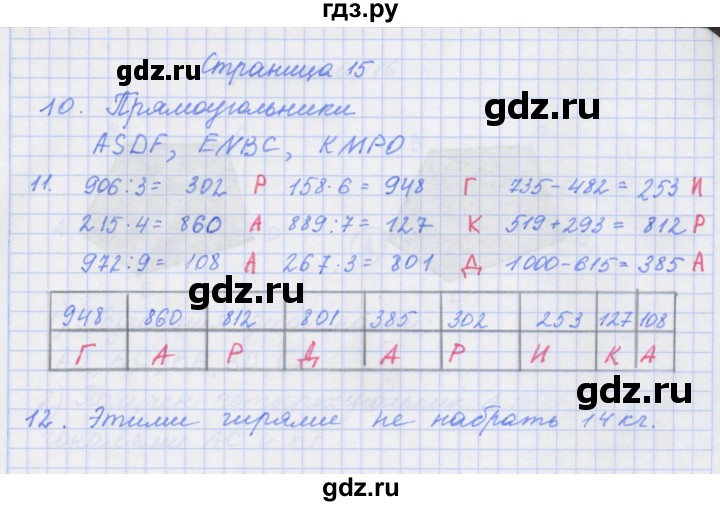 гдз.ру
Страница 15
10. Прямоугольники
ASDF, ENBC, KMPO
11. 906:3= 302 Р 158·6= 948 Г 735-482= 253 И
215·4= 860 А 889:7= 127 К 519+293= 812 Р
972:9= 108 А 267·3= 801 Д 1000-615= 385 А
948 860 812 801 385 302 253 127 108
Г А Р Д А Р И К А
12. Этими гирями не набрать 14 кг.
gdz.ru
gdz.ru
gdz.ru
gdz.ru
gdz.ru
gdz.ru
gdz.ru